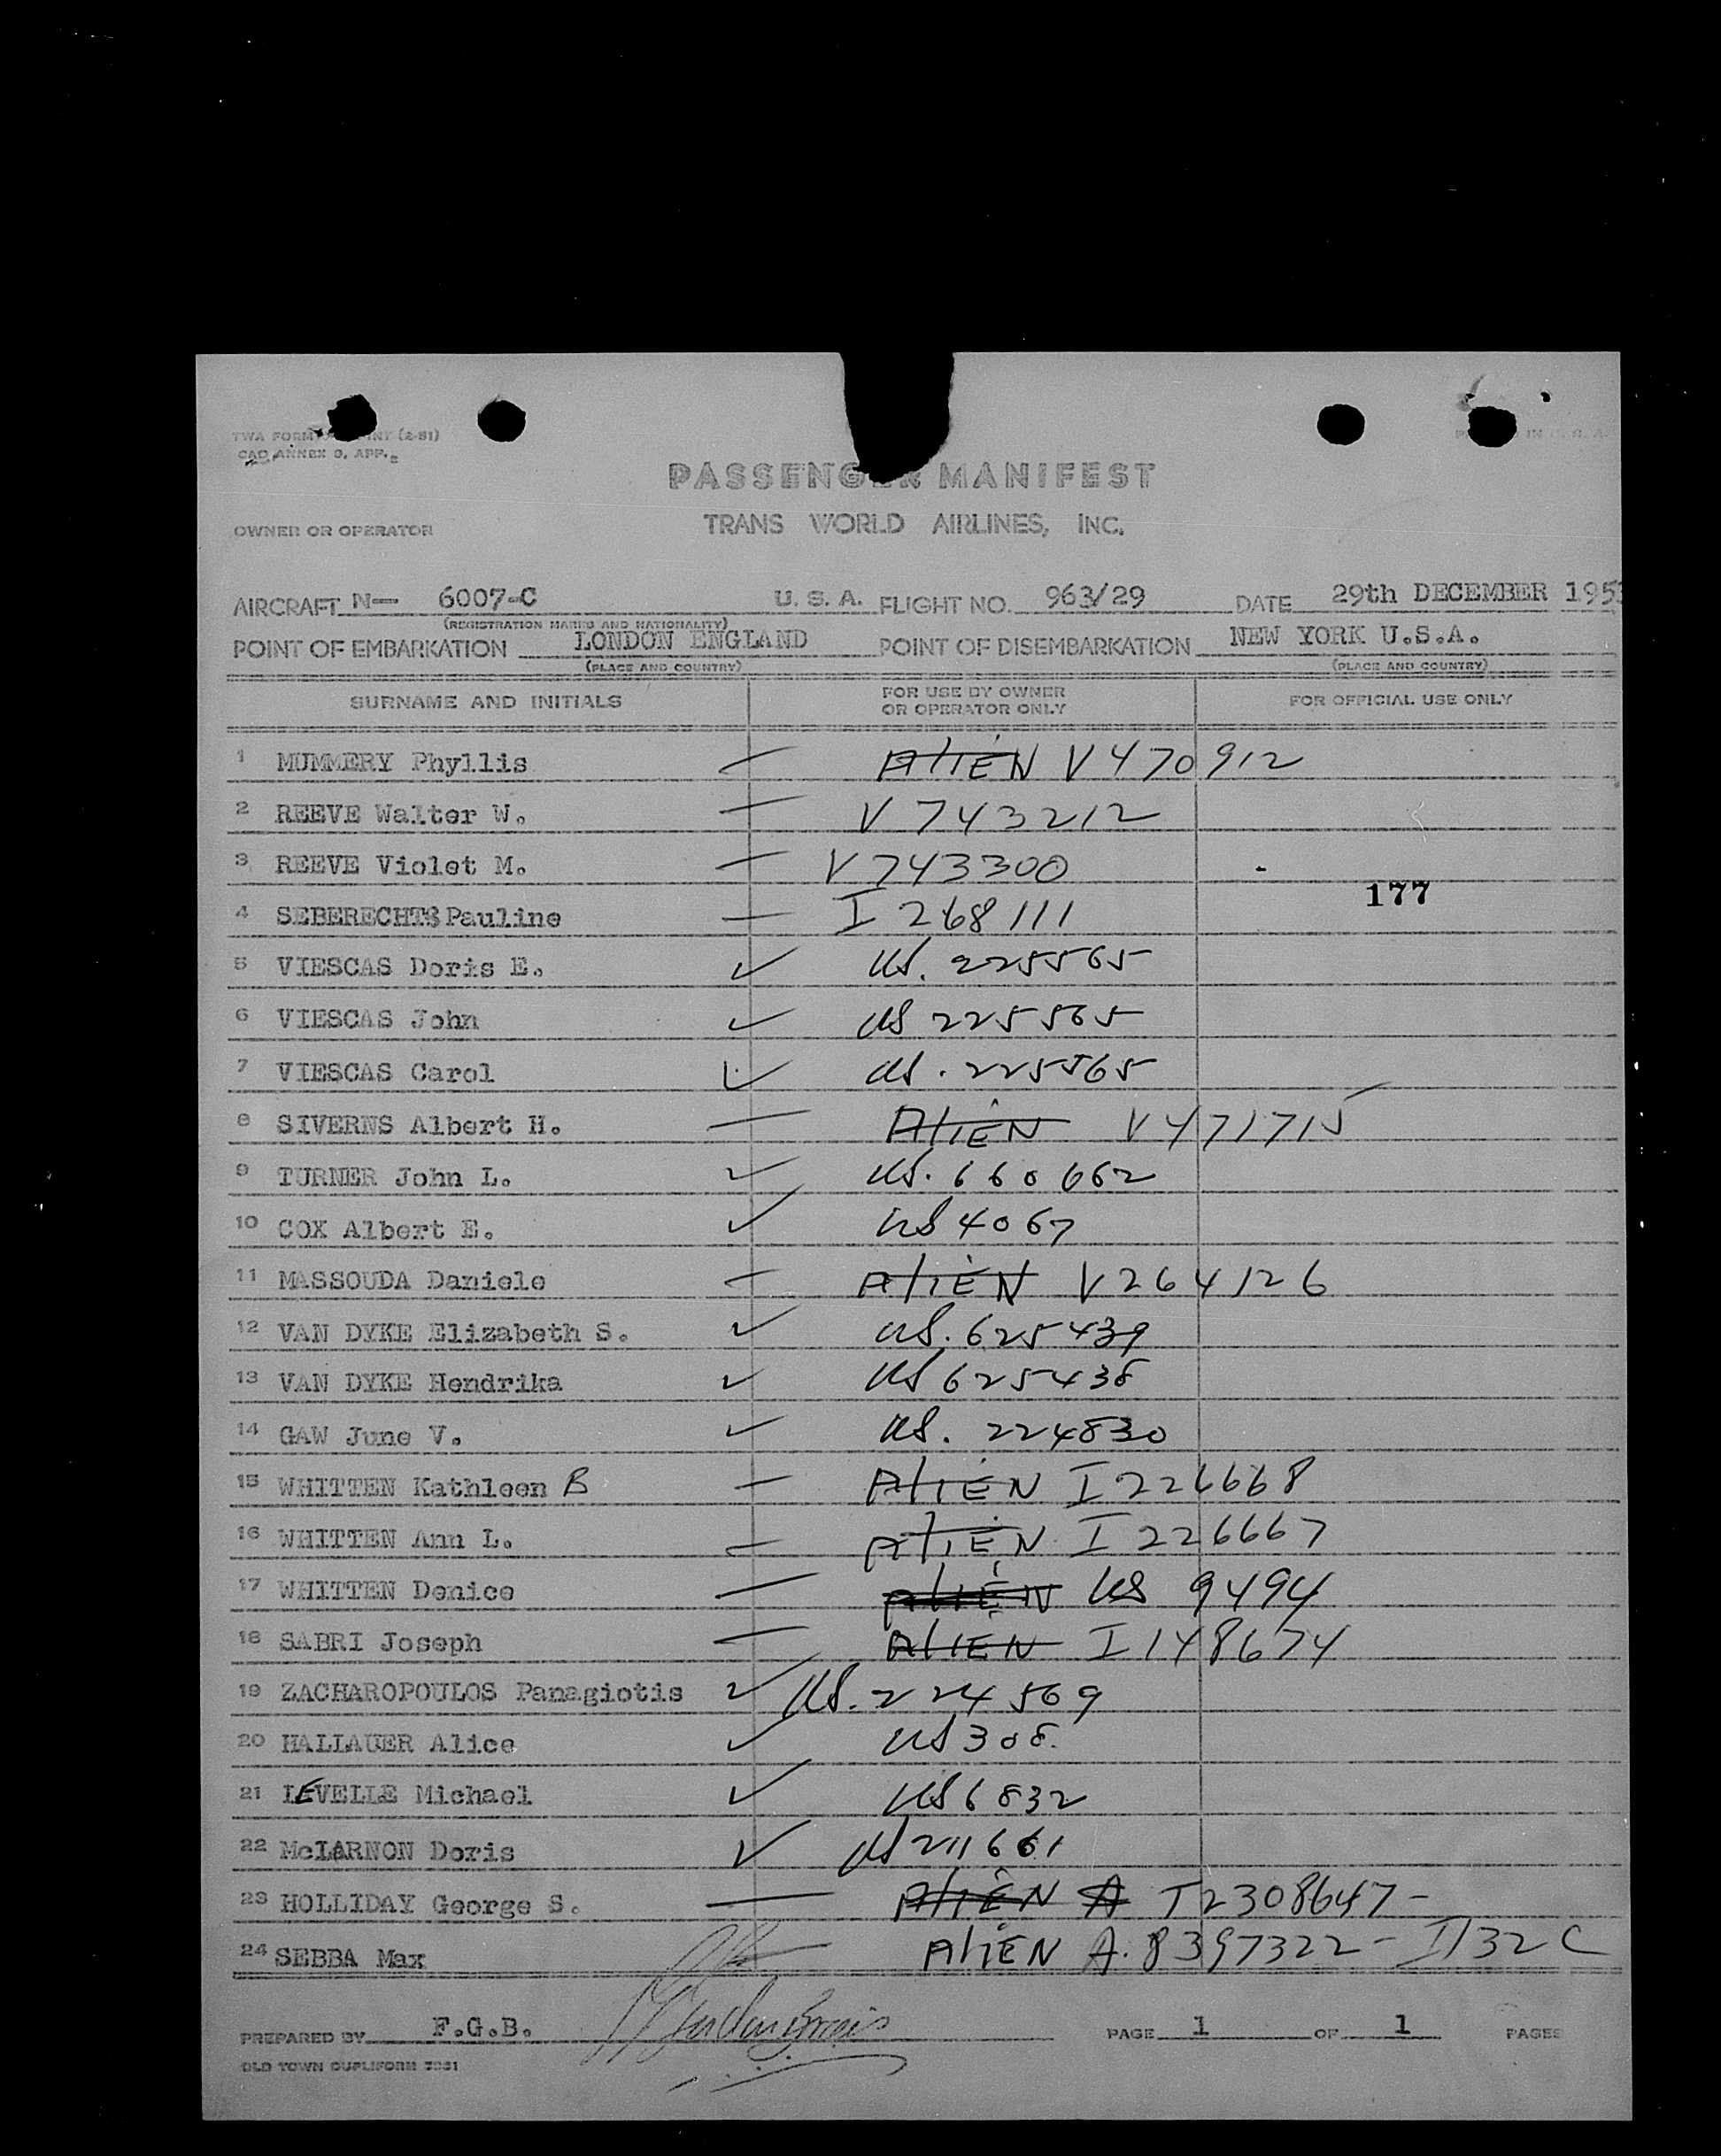 TWA FORM
CAO ANNEX 9, APP.
PASSENGER MANIFEST
OWNER OR OPERATOR TRANS WORLD AIRLINES, INC.
AIRCRAFT N— 6007-C U. S. A. FLIGHT NO. 963/29 DATE 29th DECEMBER 195
(REGISTRATION MARKS AND NATIONALITY)
POINT OF EMBARKATION LONDON ENGLAND POINT OF DISEMBARKATION NEW YORK U.S.A.
(PLACE AND COUNTRY) (PLACE AND COUNTRY)
SURNAME AND INITIALS FOR USE BY OWNER OR OPERATOR ONLY FOR OFFICIAL USE ONLY
1 MUMMERY Phyllis — AliEN V470912
2 REEVE Walter W. — V 743212
3 REEVE Violet M. — V743300
177
4 SEBERECHTS Pauline — I 268111
5 VIESCAS Doris E. ✓ US. 225565
6 VIESCAS John ✓ US 225565
7 VIESCAS Carol ✓ US. 225565
8 SIVERNS Albert H. — AliEN V471715
9 TURNER John L. ✓ US. 660662
10 COX Albert E. ✓ US 4067
11 MASSOUDA Daniele — AliEN V264126
12 VAN DYKE Elizabeth S. ✓ US. 625439
13 VAN DYKE Hendrika ✓ US 625438
14 GAW June V. ✓ US. 224830
15 WHITTEN Kathleen B — AliEN I226668
16 WHITTEN Ann L. — AliEN I 226667
17 WHITTEN Denice — AliEN US 9494
18 SABRI Joseph — AliEN I148674
19 ZACHAROPOULOS Panagiotis ✓ US. 224569
20 HALLAUER Alice ✓ US 308.
21 LEVELLE Michael ✓ US 6832
22 McLARNON Doris ✓ US 211661
23 HOLLIDAY George S. — AliEN A T2308647-
24 SEBBA Max — AliEN A. 8397322 - I132C
PREPARED BY F.G.B. PAGE 1 OF 1 PAGES
OLD TOWN DUPLIFORM